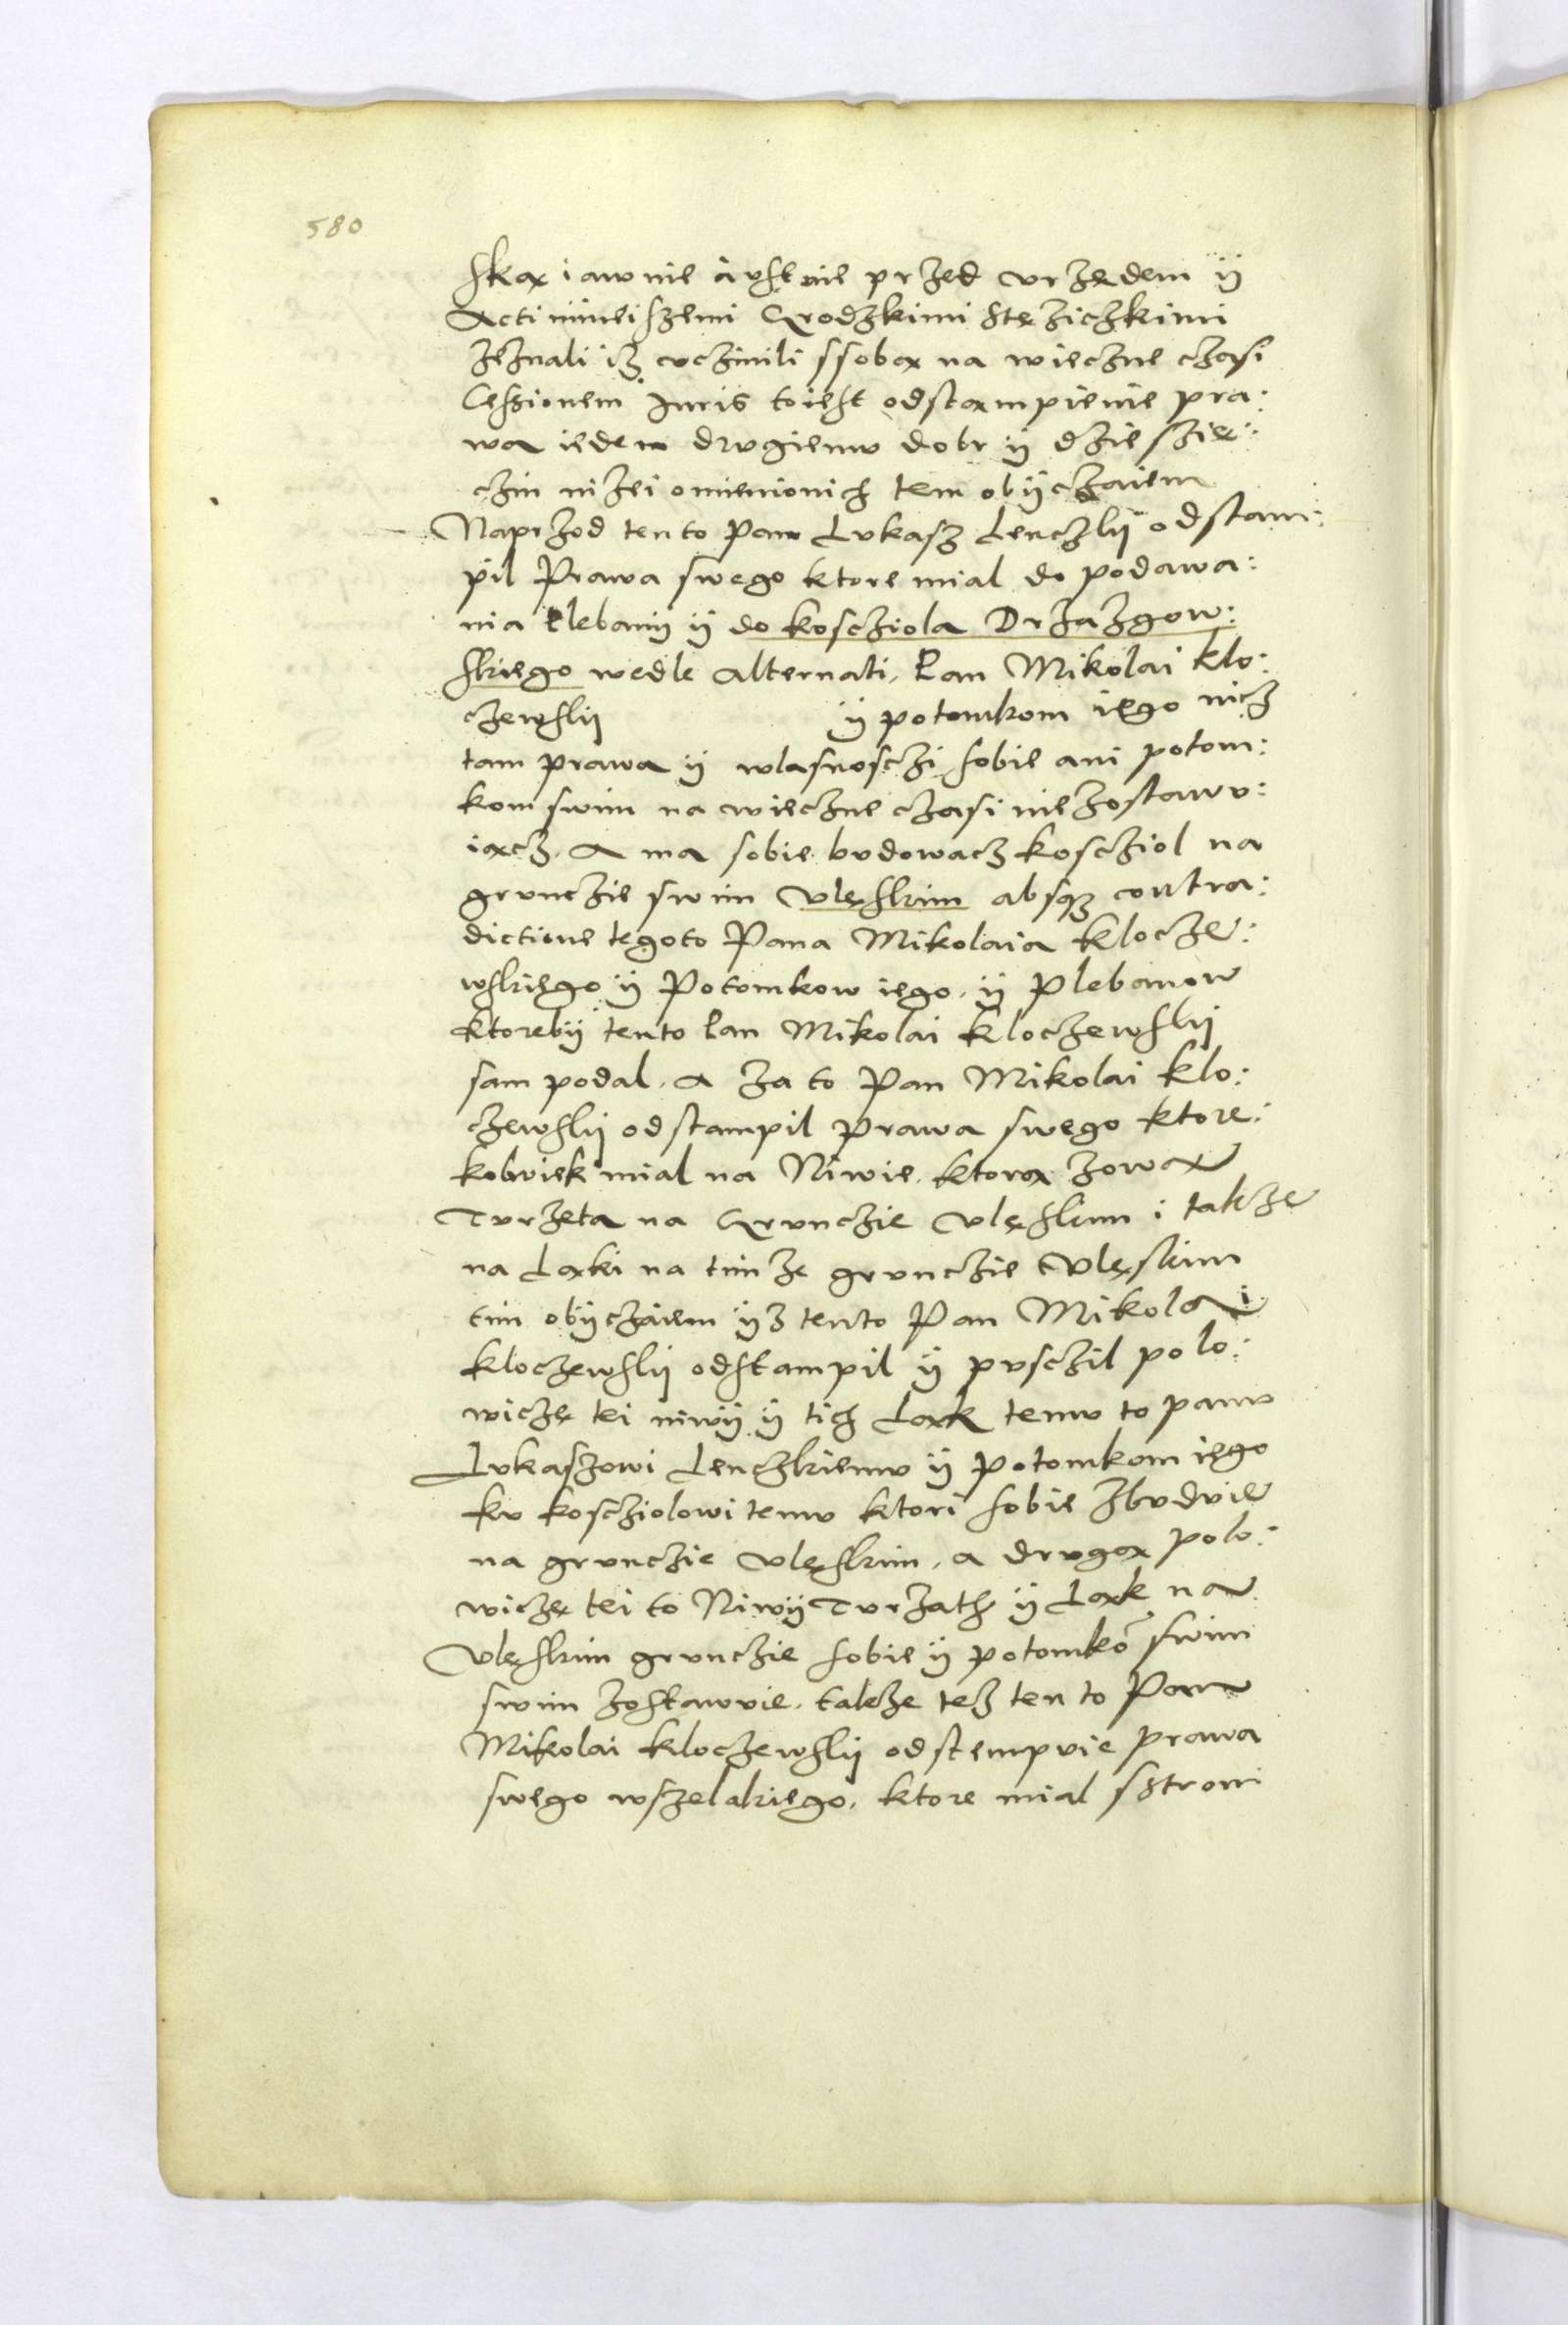 580
ską iawnie á ustnie przed vrzędem ÿ
Acti ninieiszemi Grodzkimi Stęziczkimi
żeznali iż vczinili ssobą na wieczne czasi
Cessionem Juris toiest odstampienie pra:
wa ieden drvgiemv dobr ÿ dzieszię:
czin niżei omienionich tem obÿczaiem
Naprzod ten to Pan Lvkasz Lenczkÿ odstam:
pil Prawa swego ktore mial do podawa:
nia Plebaniÿ ÿ do koscziola Drzazgow:
skiego wedle Alternati, Pan Mikolai Klo:
czewskÿ ÿ potomkom iego nicz
tam prawa ÿ wlasnosczi sobie ani potom:
kom swim na wieczne czasi niezostawv:
iącz. A ma sobie bvdowacz koscziol na
grvnczie swim Vlęskim absqz contra:
dictione tegoto Pana Mikolaia Klocze:
wskiego ÿ Potomkow iego, ÿ Plebanow
ktorebÿ tento Pan Mikolai Kloczewskÿ
sam podal, A za to Pan Mikolai Klo:
czewskÿ odstampil prawa swego ktore:
kolwiek mial na Niwie, ktorą zową
Tvrzęta na Grvnczie Vlęskim i takze
na Ląki na timże grvnczie Vlęskim
tim obÿczaiem ÿż tento Pan Mikolai
Kloczewskÿ odstampil ÿ pvsczil polo:
wiczę tei niwÿ ÿ tich Ląk temv to panv
Lvkaszowi Lenczkiemv ÿ Potomkom iego
kv koscziolowi temv ktori sobie zbvdvie
na grvnczie Vlęskim, a drvgą polo:
wiczę tei to Niwÿ Tvrzath ÿ Ląk na
Vlęskim grvnczie sobie ÿ potomkõ swim
swim zostawvie, takze też ten to Pan
Mikolai Kloczewskÿ odstempvie prawa
swego wszelakiego, ktore mial sstroni